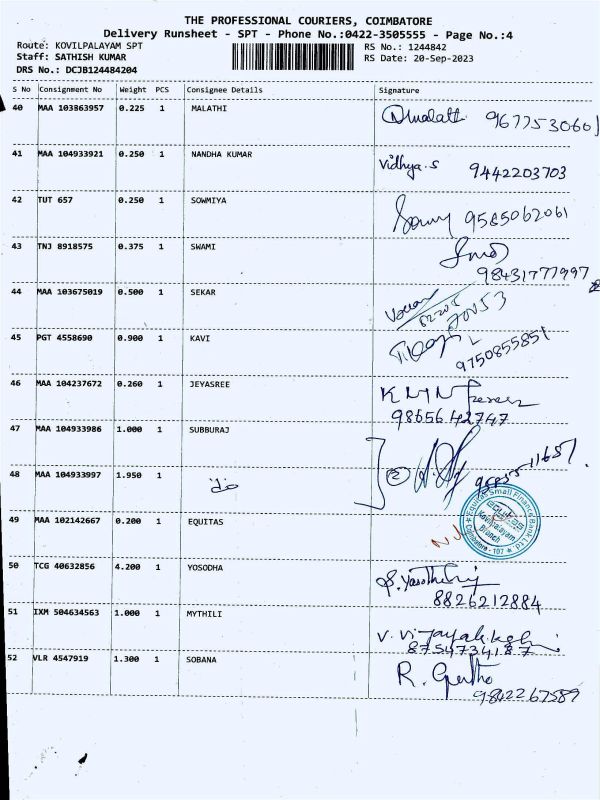 THE PROFESSIONAL COURIERS, COIMBATORE
Delivery Runsheet - SPT - Phone No.:0422-3505555 - Page No.:4
Route: KOVILPALAYAM SPT RS No.: 1244842
Staff: SATHISH KUMAR RS Date: 20-Sep-2023
DRS No.: DCJB124484204
S No Consignment No Weight PCS Consignee Details Signature
40 MAA 103863957 0.225 1 MALATHI
9677530601
41 MAA 104933921 0.250 1 NANDHA KUMAR Vidhya.S 9442203703
42 TUT 657 0.250 1 SOWMIYA Sowmy 9585062061
43 TNJ 8918575 0.375 1 SWAMI
98431777997
44 MAA 103675019 0.500 1 SEKAR
45 PGT 4558690 0.900 1 KAVI
9750855851
46 MAA 104237672 0.260 1 JEYASREE
9865642747
47 MAA 104933986 1.000 1 SUBBURAJ
48 MAA 104933997 1.950 1
49 MAA 102142667 0.200 1 EQUITAS
Equitas Small Finance Bank Ltd.
EQUITAS
Kovilpalayam
Branch
Coimbatore - 107
50 TCG 40632856 4.200 1 YOSODHA
8826212884
51 IXM 504634563 1.000 1 MYTHILI
8754734187
52 VLR 4547919 1.300 1 SOBANA R. Geetha
9842267589